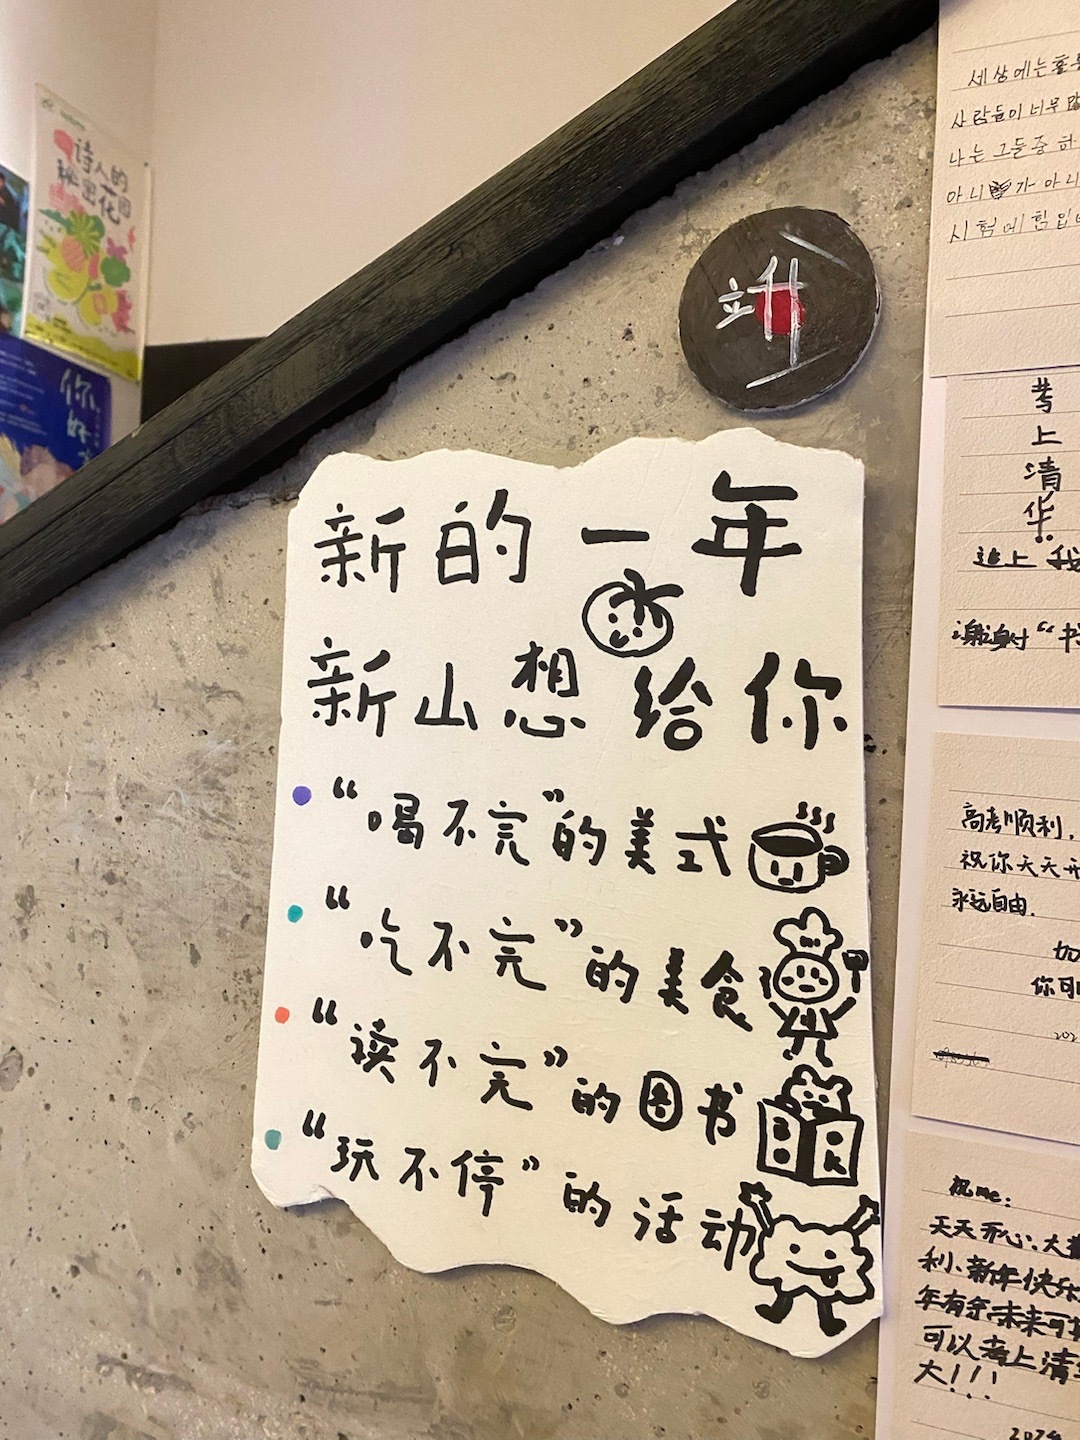 诗人的
秘密花园
你好
新的一年
新山想给你
“喝不完”的美式
“吃不完”的美食
“读不完”的图书
“玩不停”的活动
세상에는 훌
사람들이 너무 많
나는 그들중 하
아니 가 아니
시험에 힘입
考
上
清
华
追上 我
谢谢“书
高考顺利，
祝你天天开
永远自由．
如
你可
202
祝me：
天天开心、大
利、新年快乐
年有余 未来可
可以考上清
大！！！
2024